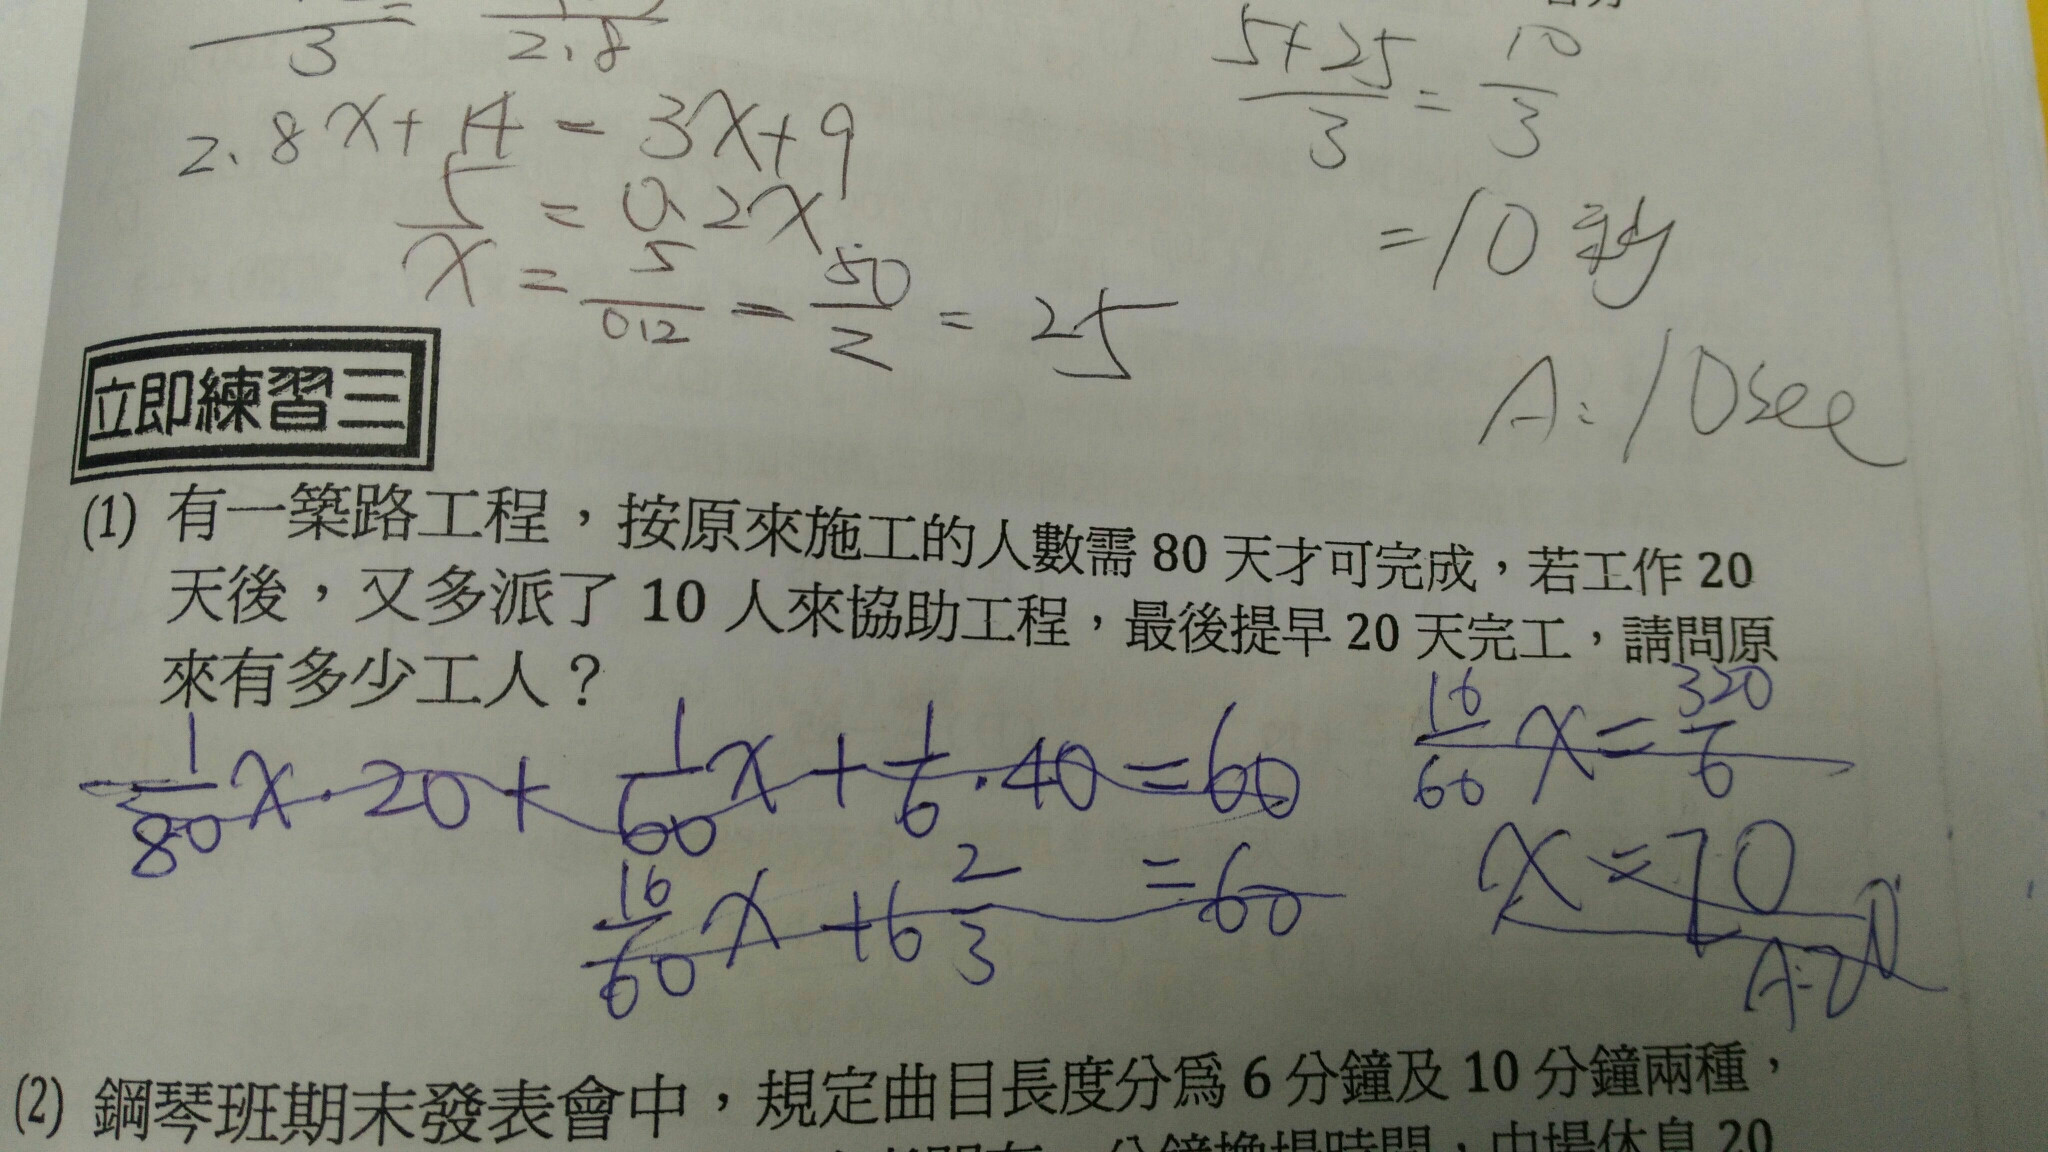 3 2.8
2.8x+14=3x+9
5=0.2x
x=5/0.2=50/2=25
5+25/3=10/3
=10秒
A:10sec
立即練習三
(1) 有一築路工程，按原來施工的人數需 80 天才可完成，若工作 20
天後，又多派了 10 人來協助工程，最後提早 20 天完工，請問原
來有多少工人？
1/80x·20+1/60x+1/6·40=60
16/60x+6 2/3=60
16/60x=320/6
x=70
(2) 鋼琴班期末發表會中，規定曲目長度分為 6 分鐘及 10 分鐘兩種，
分鐘換場時間，中場休息 20